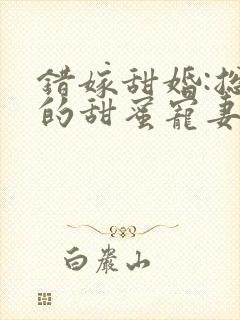 错嫁甜婚:总
的甜蜜宠妻
白岩山